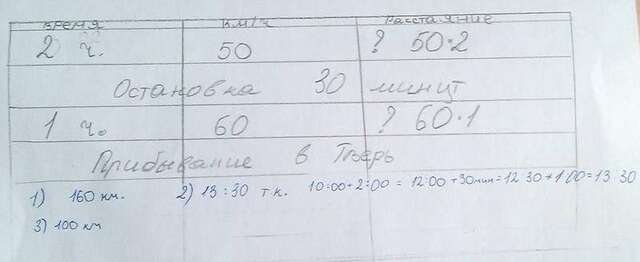 время км/ч расстаяние
2 ч. 50 ? 50·2
Остановка 30 минут
1 ч. 60 ? 60·1
Прибывание в Тверь
1) 160 км. 2) 13:30 т.к. 10:00+2:00 = 12:00+30мин=12 30+1 00=13 30
3) 100 км